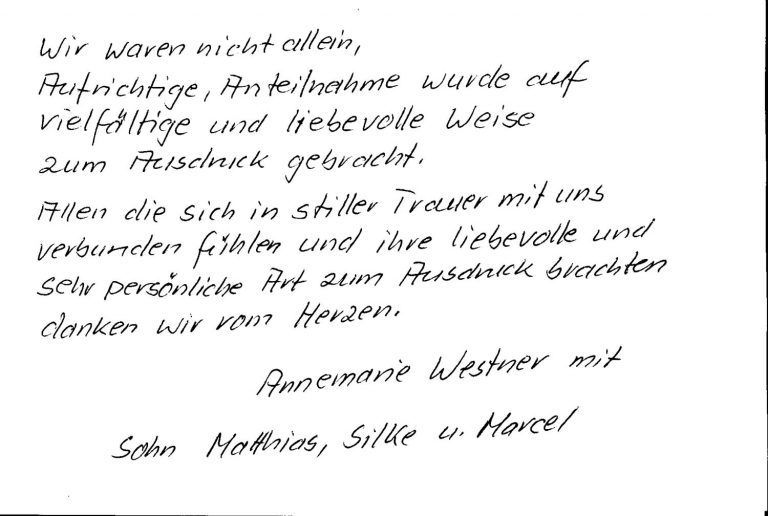 Wir waren nicht allein,
Aufrichtige, Anteilnahme wurde auf
vielfältige und liebevolle Weise
zum Ausdruck gebracht.
Allen die sich in stiller Trauer mit uns
verbunden fühlen und ihre liebevolle und
sehr persönliche Art zum Ausdruck brachten
danken wir vom Herzen.
Annemarie Westner mit
Sohn Matthias, Silke u. Marcel